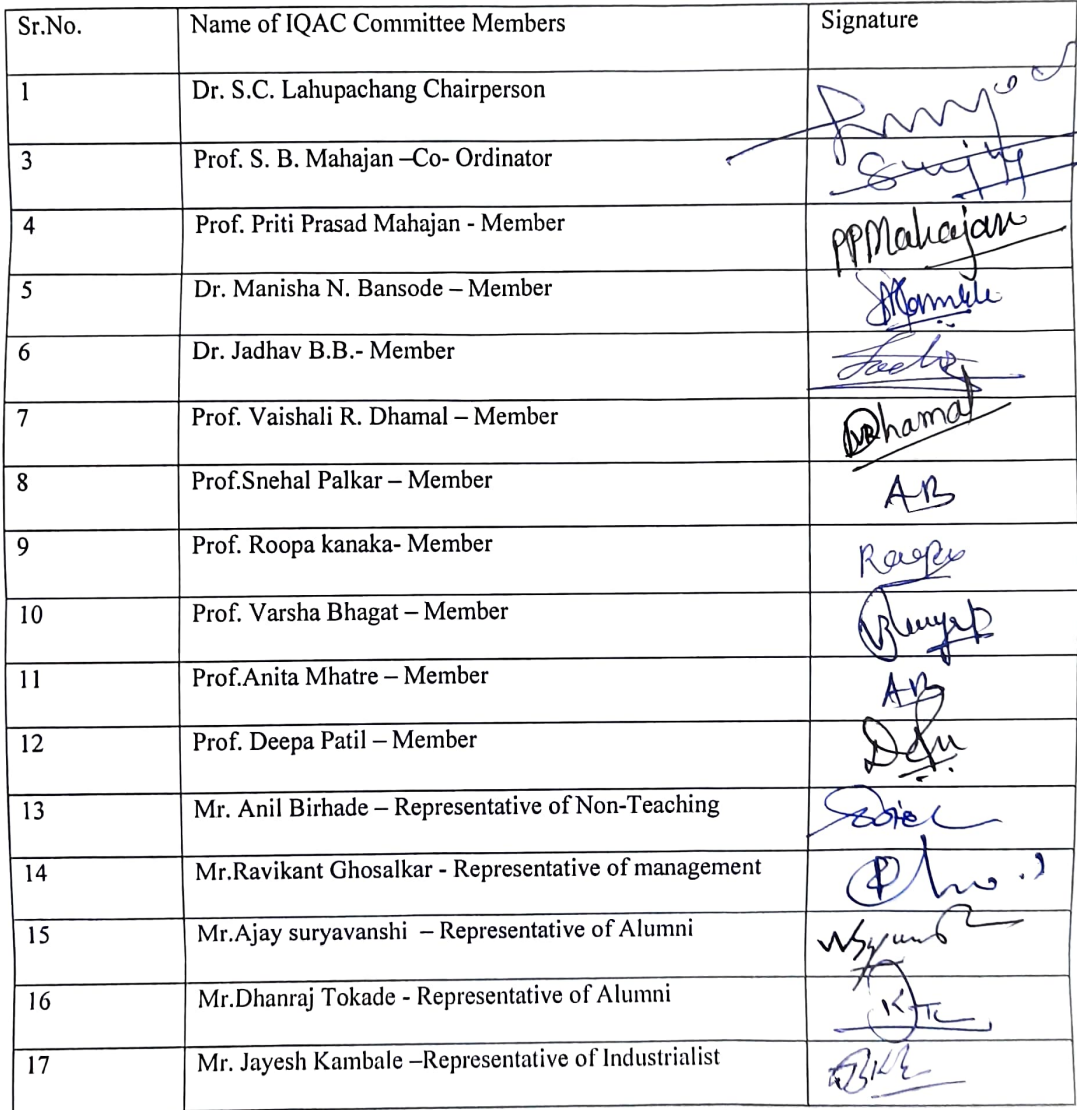 Sr.No. Name of IQAC Committee Members Signature
1 Dr. S.C. Lahupachang Chairperson
3 Prof. S. B. Mahajan –Co- Ordinator
4 Prof. Priti Prasad Mahajan - Member PPMahajan
5 Dr. Manisha N. Bansode – Member
6 Dr. Jadhav B.B.- Member
7 Prof. Vaishali R. Dhamal – Member Dhamal
8 Prof.Snehal Palkar – Member AB
9 Prof. Roopa kanaka- Member
10 Prof. Varsha Bhagat – Member
11 Prof.Anita Mhatre – Member AB
12 Prof. Deepa Patil – Member
13 Mr. Anil Birhade – Representative of Non-Teaching
14 Mr.Ravikant Ghosalkar - Representative of management
15 Mr.Ajay suryavanshi – Representative of Alumni
16 Mr.Dhanraj Tokade - Representative of Alumni
17 Mr. Jayesh Kambale –Representative of Industrialist